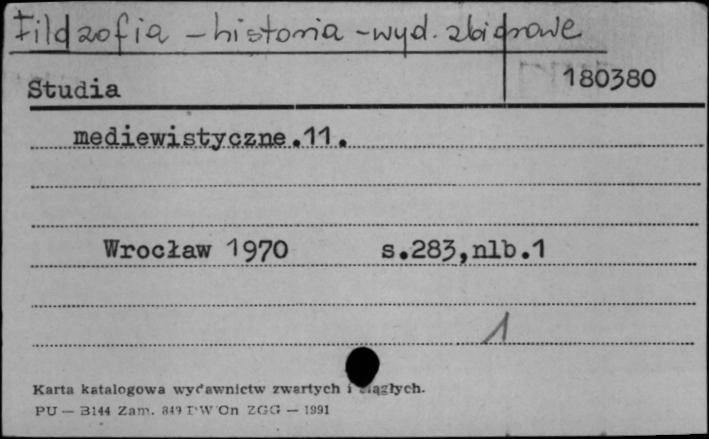 Filozofia - historia - wyd. zbiorowe
180380
Studia
mediewistyczne.11.
Wrocław 1970 s.283,nlb.1
1
Karta katalogowa wydawnictw zwartych i ciągłych.
PU — B144 Zam. 849 PW On ZGG — 1991